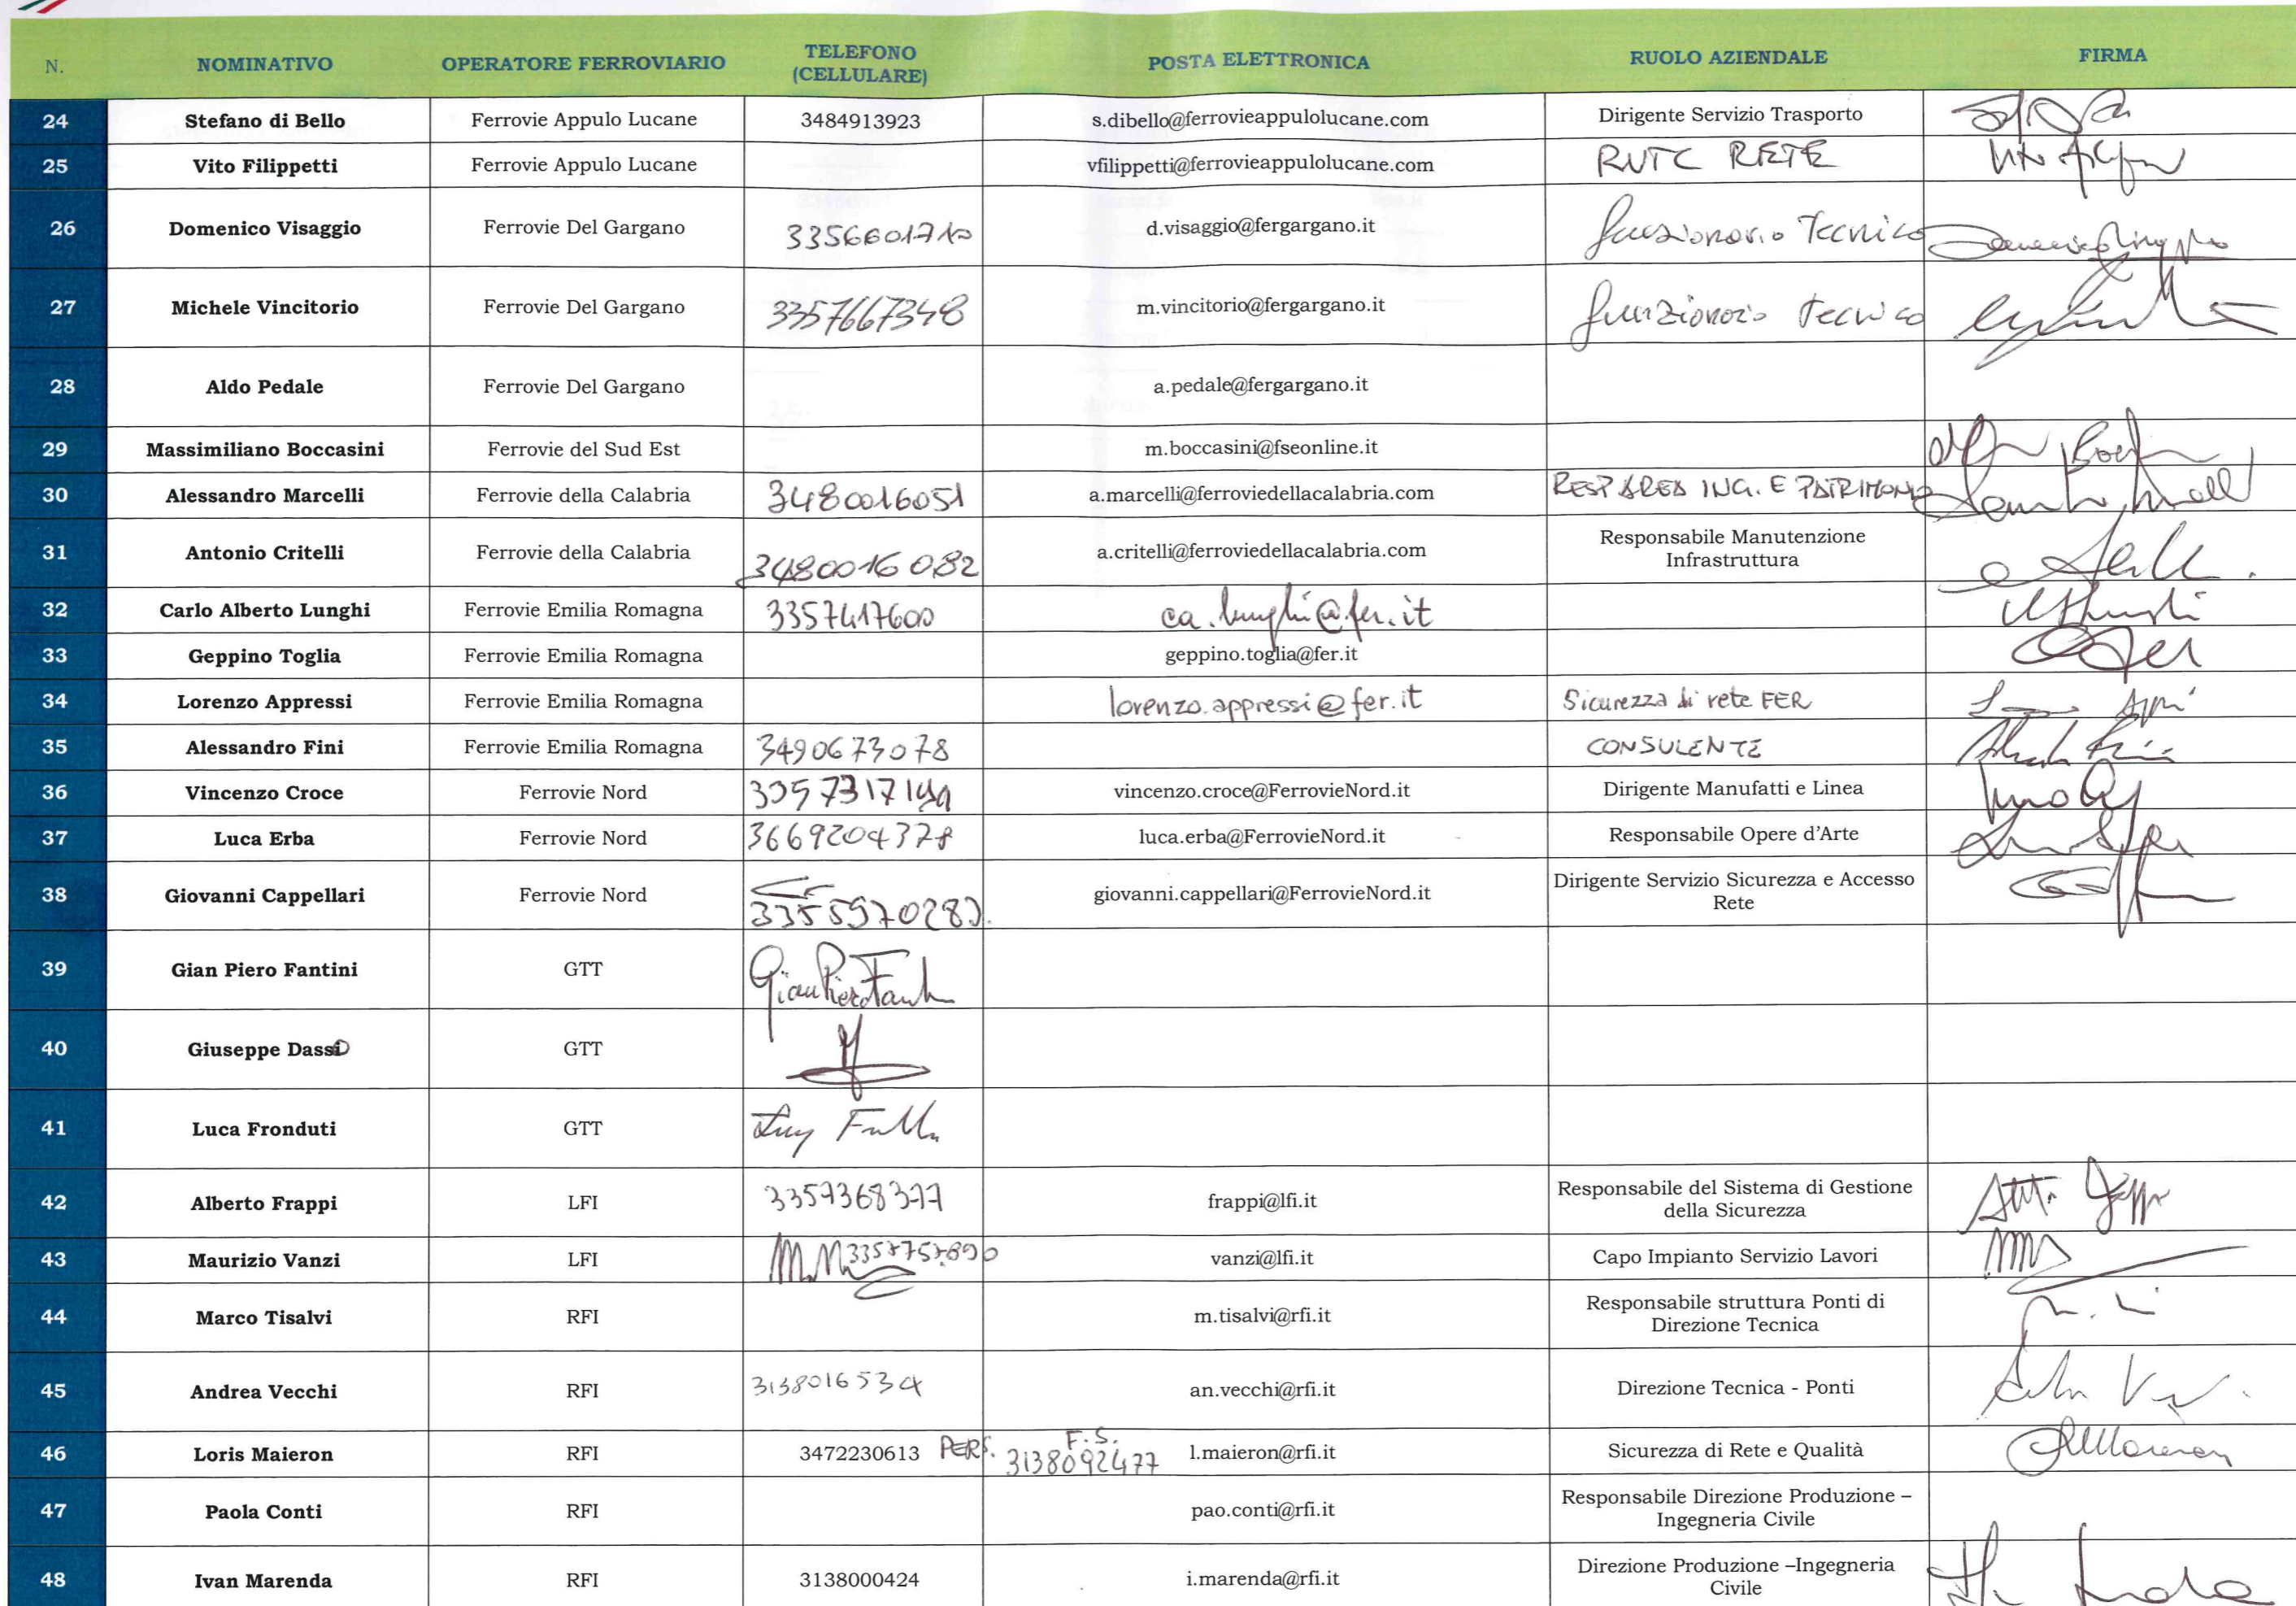 N. NOMINATIVO OPERATORE FERROVIARIO TELEFONO (CELLULARE) POSTA ELETTRONICA RUOLO AZIENDALE FIRMA
24 Stefano di Bello Ferrovie Appulo Lucane 3484913923 s.dibello@ferrovieappulolucane.com Dirigente Servizio Trasporto
25 Vito Filippetti Ferrovie Appulo Lucane vfilippetti@ferrovieappulolucane.com RUTC RETE
26 Domenico Visaggio Ferrovie Del Gargano 3356601710 d.visaggio@fergargano.it funzionario Tecnico
27 Michele Vincitorio Ferrovie Del Gargano 3357667348 m.vincitorio@fergargano.it funzionario Tecnico
28 Aldo Pedale Ferrovie Del Gargano a.pedale@fergargano.it
29 Massimiliano Boccasini Ferrovie del Sud Est m.boccasini@fseonline.it
30 Alessandro Marcelli Ferrovie della Calabria 3480016051 a.marcelli@ferroviedellacalabria.com RESP AREA ING. E PATRIMONIO
31 Antonio Critelli Ferrovie della Calabria 3480016082 a.critelli@ferroviedellacalabria.com Responsabile Manutenzione
Infrastruttura
32 Carlo Alberto Lunghi Ferrovie Emilia Romagna 3357417600 ca.lunghi@fer.it
33 Geppino Toglia Ferrovie Emilia Romagna geppino.toglia@fer.it
34 Lorenzo Appressi Ferrovie Emilia Romagna lorenzo.appressi@fer.it Sicurezza di rete FER
35 Alessandro Fini Ferrovie Emilia Romagna 3490673078 CONSULENTE
36 Vincenzo Croce Ferrovie Nord vincenzo.croce@FerrovieNord.it Dirigente Manufatti e Linea
37 Luca Erba Ferrovie Nord 3669204378 luca.erba@FerrovieNord.it Responsabile Opere d'Arte
38 Giovanni Cappellari Ferrovie Nord giovanni.cappellari@FerrovieNord.it Dirigente Servizio Sicurezza e Accesso
Rete
39 Gian Piero Fantini GTT
40 Giuseppe Dasso GTT
41 Luca Fronduti GTT
42 Alberto Frappi LFI 3357368377 frappi@lfi.it Responsabile del Sistema di Gestione
della Sicurezza
43 Maurizio Vanzi LFI vanzi@lfi.it Capo Impianto Servizio Lavori
44 Marco Tisalvi RFI m.tisalvi@rfi.it Responsabile struttura Ponti di
Direzione Tecnica
45 Andrea Vecchi RFI 3138016534 an.vecchi@rfi.it Direzione Tecnica - Ponti
46 Loris Maieron RFI 3472230613 PERS. F.S. 3138092477 l.maieron@rfi.it Sicurezza di Rete e Qualità
47 Paola Conti RFI pao.conti@rfi.it Responsabile Direzione Produzione –
Ingegneria Civile
48 Ivan Marenda RFI 3138000424 i.marenda@rfi.it Direzione Produzione –Ingegneria
Civile